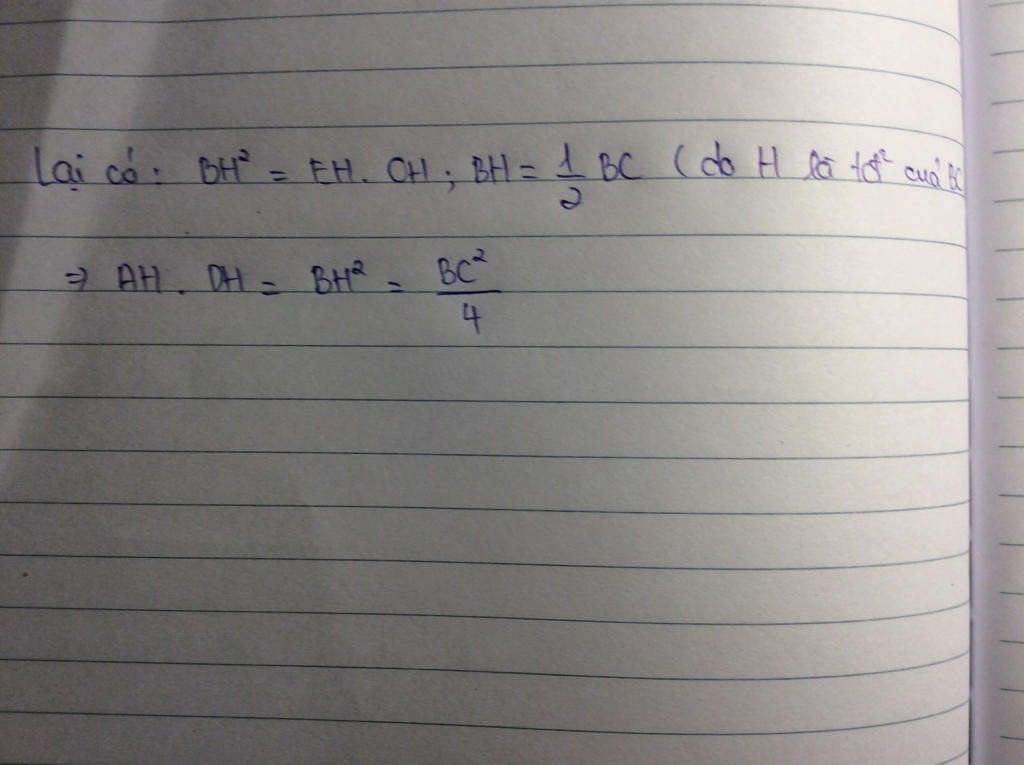 Lại có: BH² = EH. CH; BH = 1/2 BC (do H là tđ² của BC
⇒ AH. DH = BH² = BC²/4